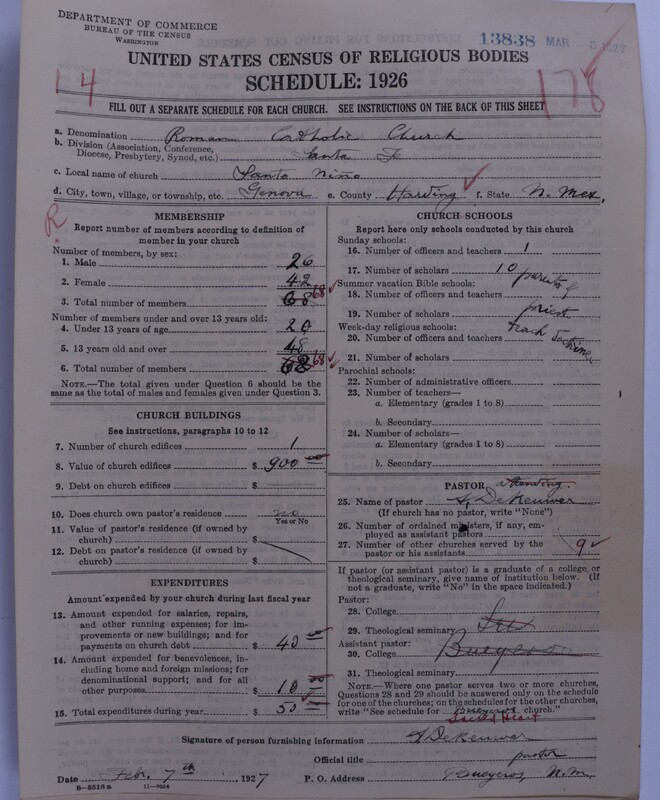 DEPARTMENT OF COMMERCE
BUREAU OF THE CENSUS
WASHINGTON
13838 MAR 5 1927
UNITED STATES CENSUS OF RELIGIOUS BODIES
SCHEDULE: 1926
14
178
FILL OUT A SEPARATE SCHEDULE FOR EACH CHURCH. SEE INSTRUCTIONS ON THE BACK OF THIS SHEET
a. Denomination Roman Catholic Church
b. Division (Association, Conference, Diocese, Presbytery, Synod, etc.) Santa F
c. Local name of church Santo Niño
d. City, town, village, or township, etc. Genova e. County Harding f. State N. Mex.
R
MEMBERSHIP
Report number of members according to definition of member in your church
Number of members, by sex:
1. Male 26
2. Female 42
3. Total number of members 68 68
Number of members under and over 13 years old:
4. Under 13 years of age 20
5. 13 years old and over 48
6. Total number of members 68 68
NOTE.—The total given under Question 6 should be the same as the total of males and females given under Question 3.
CHURCH BUILDINGS
See instructions, paragraphs 10 to 12
7. Number of church edifices 1
8. Value of church edifices $ 900 00
9. Debt on church edifices $
10. Does church own pastor's residence no
Yes or No
11. Value of pastor's residence (if owned by church) $
12. Debt on pastor's residence (if owned by church) $
EXPENDITURES
Amount expended by your church during last fiscal year
13. Amount expended for salaries, repairs, and other running expenses; for improvements or new buildings; and for payments on church debt $ 40
14. Amount expended for benevolences, including home and foreign missions; for denominational support; and for all other purposes $ 10 00
15. Total expenditures during year $ 50
CHURCH SCHOOLS
Report here only schools conducted by this church
Sunday schools:
16. Number of officers and teachers 1
17. Number of scholars 10
Summer vacation Bible schools:
18. Number of officers and teachers
19. Number of scholars priest
Week-day religious schools: teach
20. Number of officers and teachers
21. Number of scholars
Parochial schools:
22. Number of administrative officers
23. Number of teachers—
a. Elementary (grades 1 to 8)
b. Secondary
24. Number of scholars—
a. Elementary (grades 1 to 8)
b. Secondary
PASTOR attending.
25. Name of pastor
(If church has no pastor, write "None")
26. Number of ordained ministers, if any, employed as assistant pastors
27. Number of other churches served by the pastor or his assistants 9
If pastor (or assistant pastor) is a graduate of a college or theological seminary, give name of institution below. (If not a graduate, write "No" in the space indicated.)
Pastor:
28. College
29. Theological seminary See
Assistant pastor:
30. College Bueyeros
31. Theological seminary
NOTE.—Where one pastor serves two or more churches, Questions 28 and 29 should be answered only on the schedule for one of the churches; on the schedules for the other churches, write "See schedule for Bueyeros church."
Sacred Heart
Signature of person furnishing information
Official title pastor
Date Feb. 7th, 1927 P. O. Address Bueyeros N.M.
8—5518a 11—9684